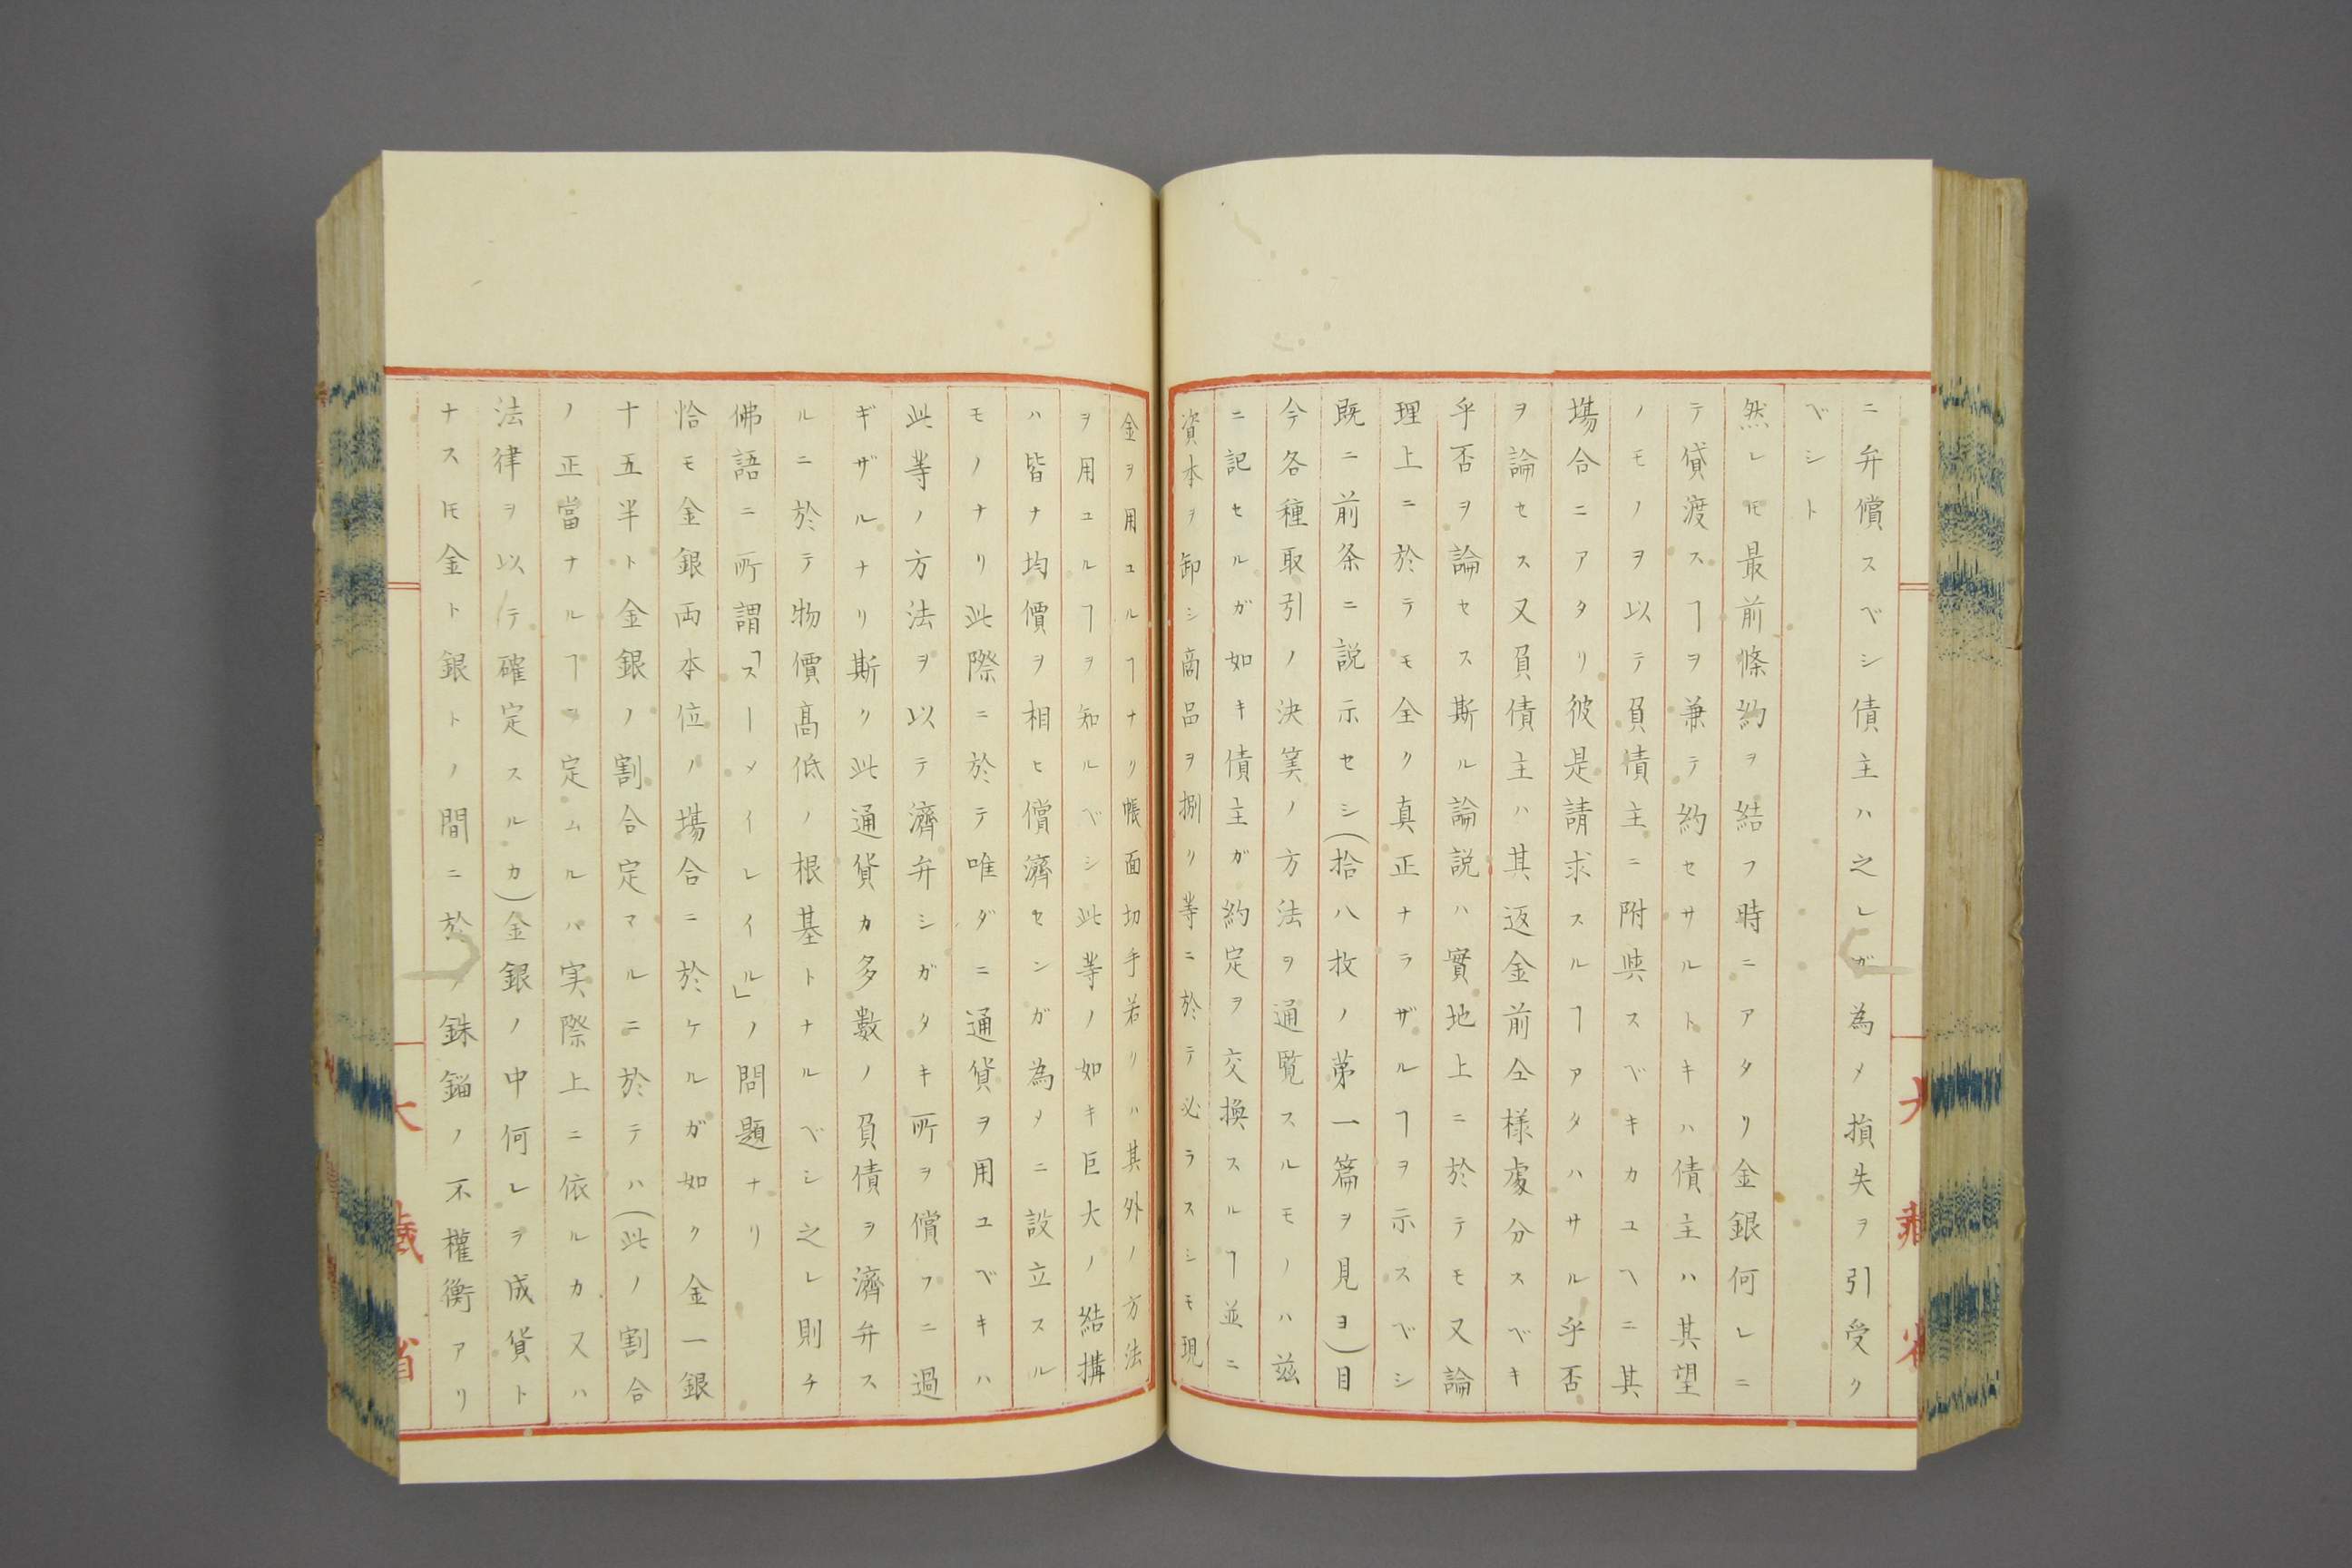 ニ弁償スベシ債主ハ之レガ為メ損失ヲ引受ク
ベシト
然レ𪜈最前條約ヲ結フ時ニアタリ金銀何レニ
テ貸渡スヿヲ兼テ約セサルトキハ債主ハ其望
ノモノヲ以テ負債主ニ附與スベキカユヘニ其
塲合ニアタリ彼是請求スルヿアタハサル乎否
ヲ論セス又負債主ハ其返金前仝様處分スベキ
乎否ヲ論セス斯ル論説ハ實地上ニ於テモ又論
理上ニ於テモ全ク真正ナラザルヿヲ示スベシ
既ニ前条ニ説示セシ(拾八枚ノ苐一篇ヲ見ヨ)目
今各種取引ノ決算ノ方法ヲ通覧スルモノハ兹
ニ記セルガ如キ債主ガ約定ヲ交換スルヿ並ニ
資本ヲ卸シ商品ヲ捌ク等ニ於テ必ラスシモ現
金ヲ用ユルヿナク帳面切手若クハ其外ノ方法
ヲ用ユルヿヲ知ルベシ此等ノ如キ巨大ノ結搆
ハ皆ナ均價ヲ相ヒ償濟センガ為メニ設立スル
モノナリ此際ニ於テ唯ダニ通貨ヲ用ユベキハ
此等ノ方法ヲ以テ濟弁シガタキ所ヲ償フニ過
ギザルナリ斯ク此通貨カ多數ノ負債ヲ濟弁ス
ルニ於テ物價髙低ノ根基トナルベシ之レ則チ
佛語ニ所謂「スーメイレイル」ノ問題ナリ
恰モ金銀両本位ノ塲合ニ於ケルガ如ク金一銀
十五半ト金銀ノ割合定マルニ於テハ(此ノ割合
ノ正當ナルヿヲ定ムルハ実際上ニ依ルカ又ハ
法律ヲ以テ確定スルカ)金銀ノ中何レヲ成貨ト
ナス𪜈金ト銀トノ間ニ於ノ銖錙ノ不權衡アリ
大藏省